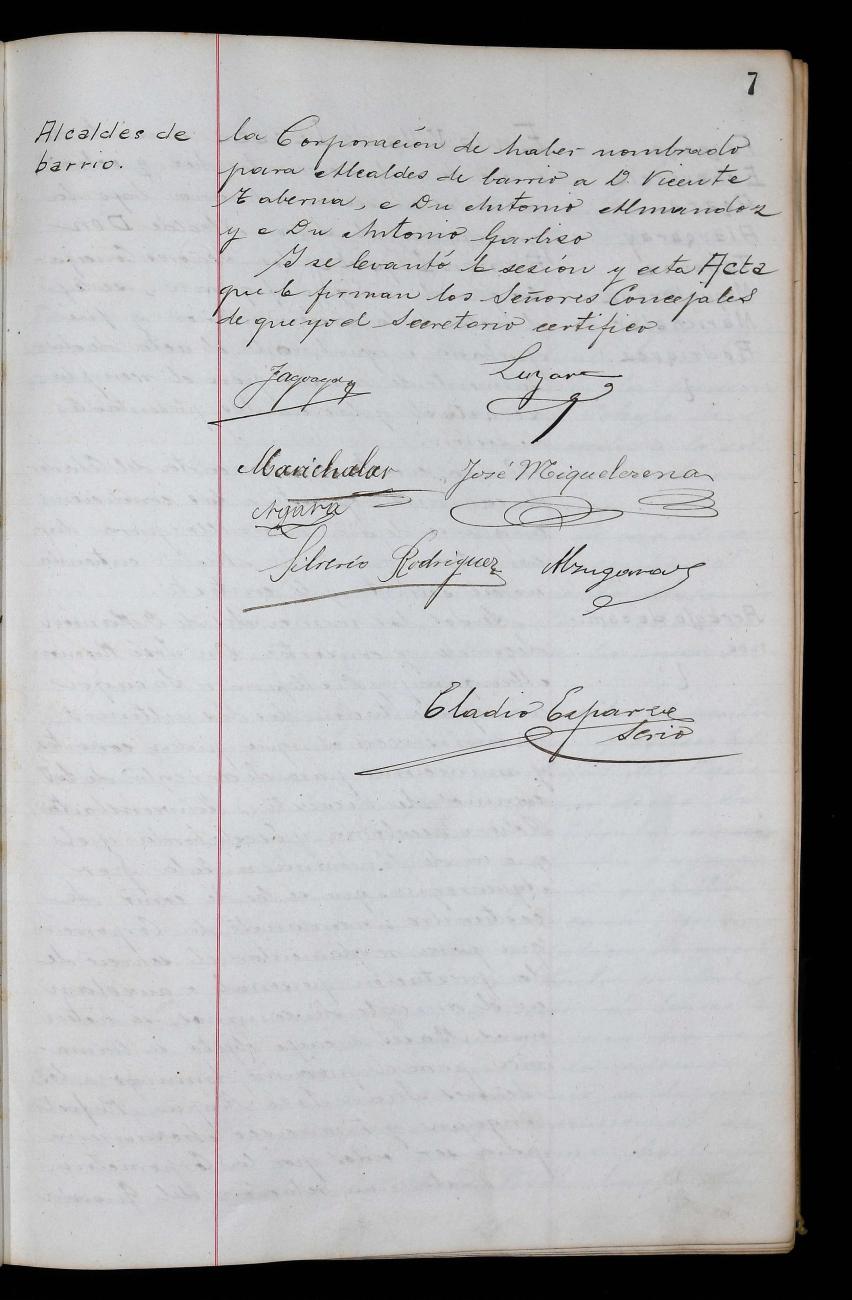 7
Alcaldes de
barrio.
la Corporación de haber nombrado
para Alcaldes de barrio a D. Vicente
Taberna, a Dn Antonio Almandoz
y a Dn Antonio Garbiso
Y se levantó la sesión y esta Acta
que la firman los Señores Concejales
de que yo el Secretario certifico
Marichalar José Miquelerena
Silverio Rodriguez Alzugaray
Eladio Esparza
Serio